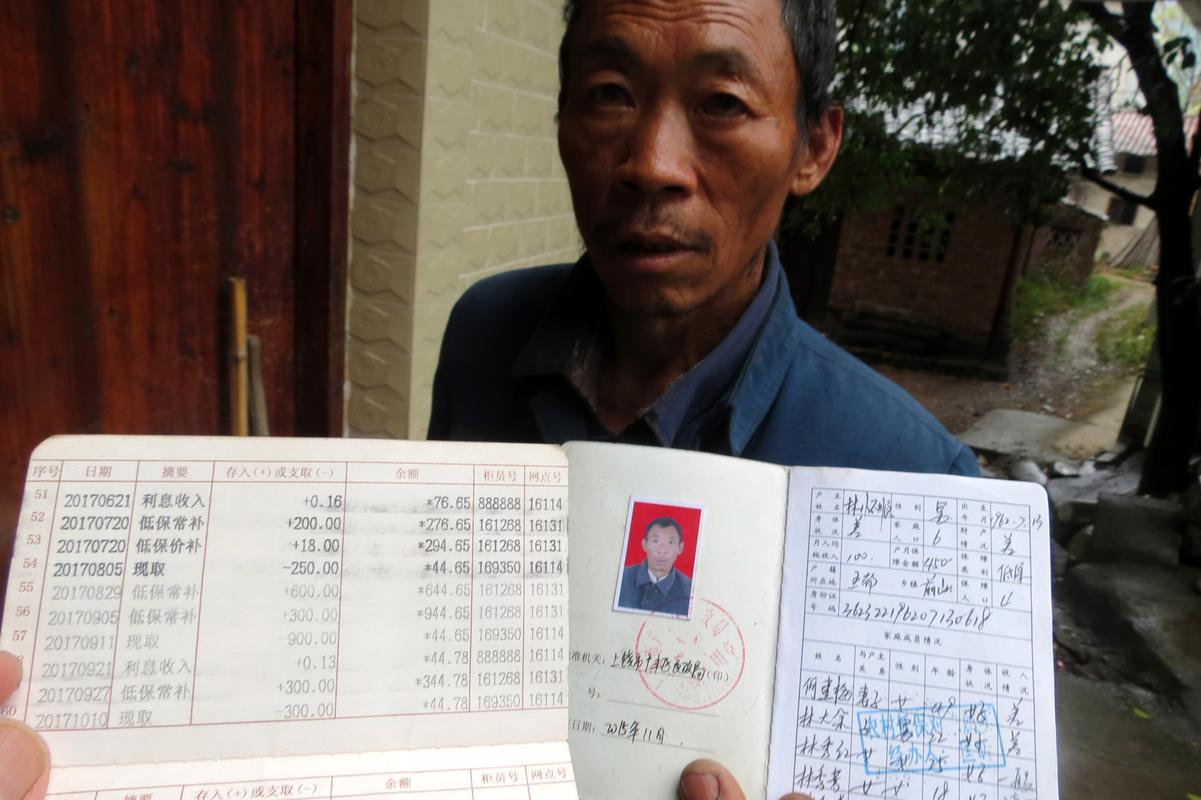 序号 日期 摘要 存入(+)或支取(-) 余额 柜员号 网点号
51 20170621 利息收入 +0.16 *76.65 888888 16114
52 20170720 低保常补 +200.00 *276.65 161268 16131
53 20170720 低保价补 +18.00 *294.65 161268 16131
54 20170805 现取 -250.00 *44.65 169350 16114
55 20170829 低保常补 +600.00 *644.65 161268 16131
56 20170905 低保常补 +300.00 *944.65 161268 16131
57 20170911 现取 -900.00 *44.65 169350 16114
20170921 利息收入 +0.13 *44.78 888888 16114
20170927 低保常补 +300.00 *344.78 161268 16131
60 20171010 现取 -300.00 *44.78 169350 16114
序号 日期 摘要 存入(+)或支取(-) 余额 柜员号 网点号
准机关: (印)
号:
日期: 2015年11月.
户主姓名 性别 男 出生年月
身体状况 差 家庭人口 6 财产情况 差
月人均纯收入 100. 户月保障金额 450 保障类别
户籍所在地 乡镇 保障人口
身份证号码
家庭成员情况
姓名 与户主关系 性别 年龄 身体状况 收入情况
妻子 女 49 差
林大余 差
林秀红 女 25
18